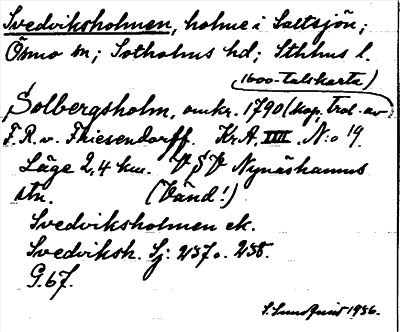 Svedviksholmen, holme i Saltsjön;
Ösmo sn; Sotholms hd; Sthlms l.
(1600-talskarta)
Solbergsholm, omkr. 1790 (kop. trol. av
F. R. v. Friesendorff. Kr.A, XIII. N:o 19.
Läge 2,4 km. V S V Nynäshamns
stn. (Vänd!)
Svedviksholmen ek.
Svedviksh. Sj: 237 o. 238.
G. 67.
S. Lundqvist 1936.